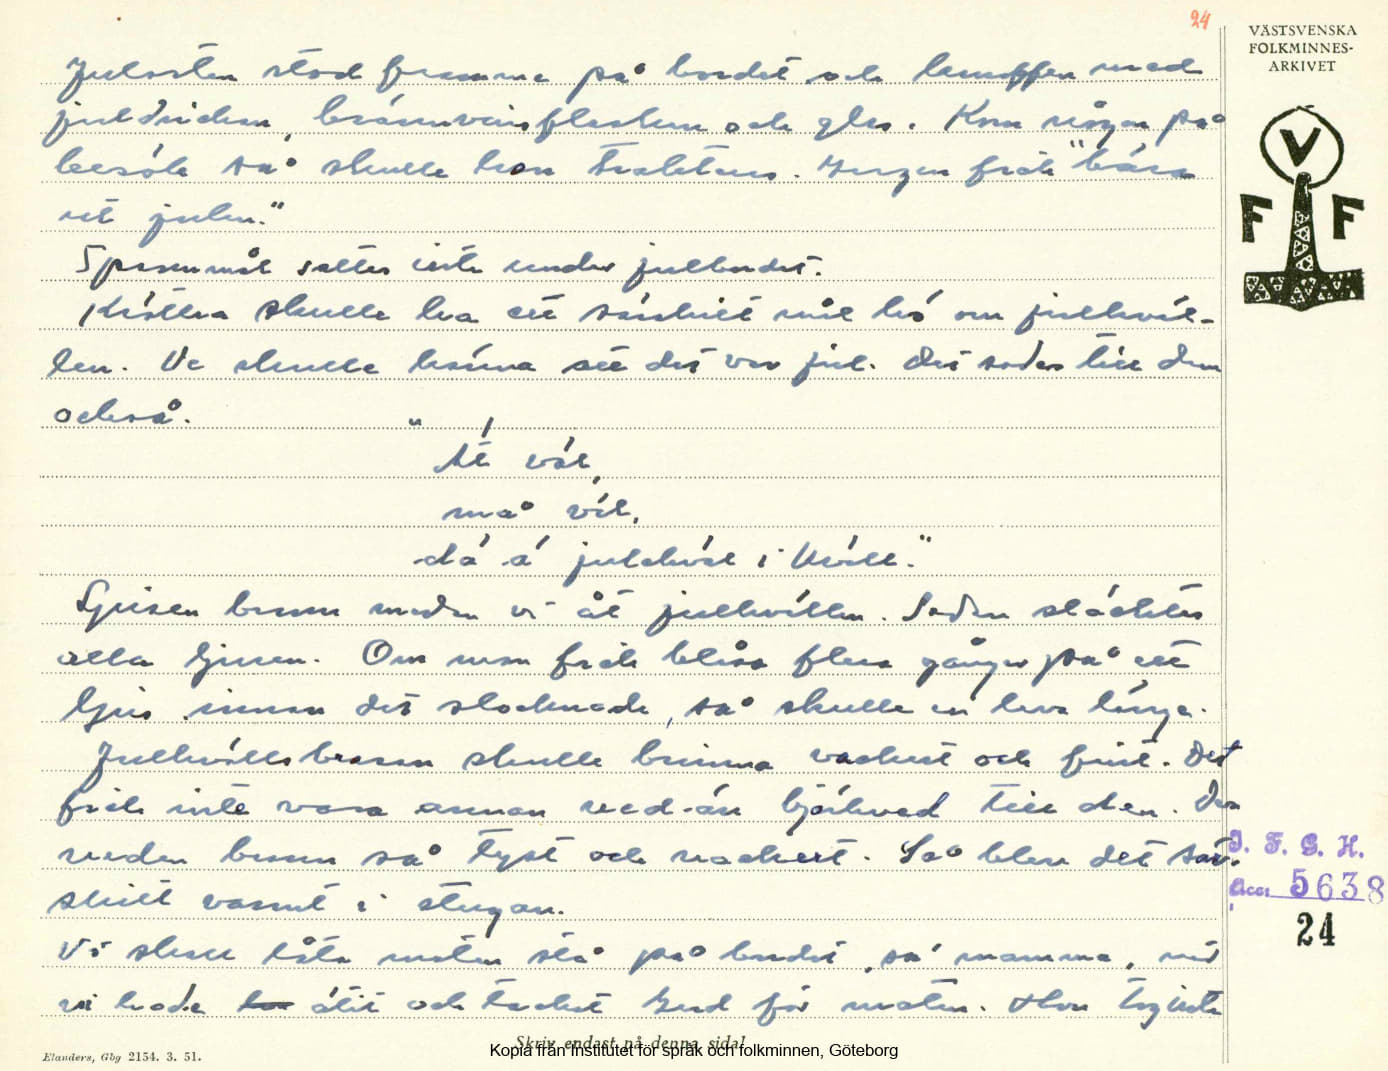 24
VÄSTSVENSKA
FOLKMINNES-
ARKIVET
V
F F
Julosten stod framme på bordet och kruff​en med
juldricken, brännvinsflaskan och glas. Kom någon på
besök så skulle han trakteras. Ingen fick "bära
ut julen."
Spannmål sattes inte under julbordet.
Kräken skulle ha ett särskilt mål hö om julkväl-
len. De skulle känna att det var jul. Det sades till dem
också.
"Ät väl,
må väl,
dä ä julakväl i kväll."
Ljusen brann medan vi åt julkvällen. Sedan släcktes
alla ljusen. Om man fick blåsa flera gånger på ett
ljus innan det slocknade, så skulle en leva länge.
Julkvällsbrasan skulle brinna vackert och fint. Det
fick inte vara annan ved än björkved till den. Den
veden brann så tyst och vackert. Så blev det sär-
skilt varmt i stugan.
Vi skull låta maten stå på bordet, sa mamma, när
vi hade ätit och tackat Gud för maten. Hon tog inte
I. F. G. H.
Acc. 5638
24
Skriv endast på denna sida!
Elanders, Gbg 2154. 3. 51.
Kopia från Institutet för språk och folkminnen, Göteborg